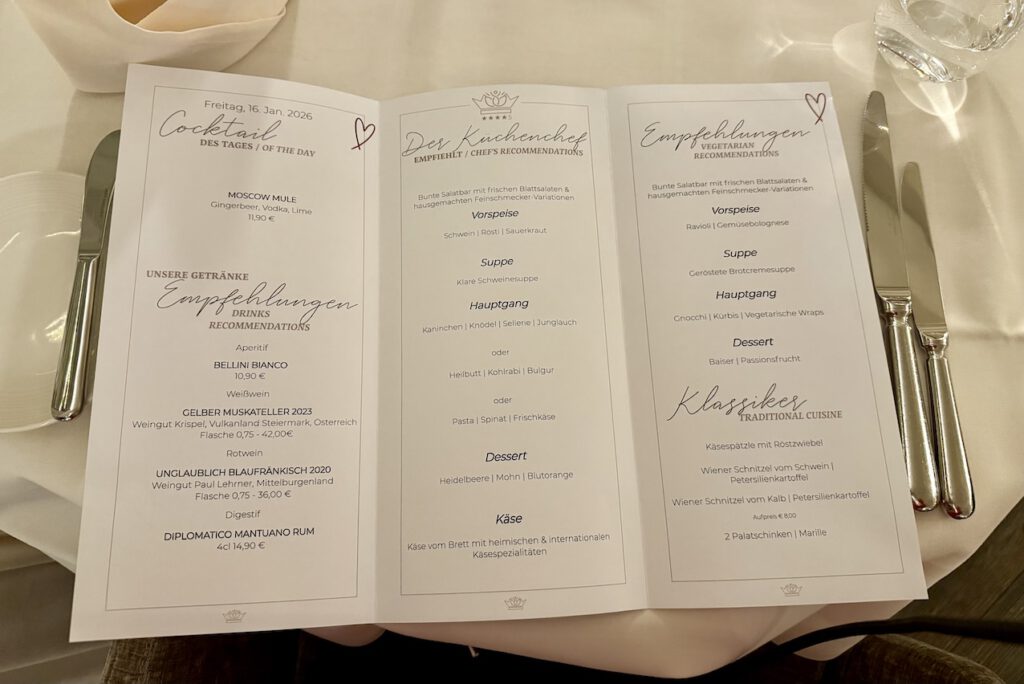 Freitag, 16. Jan. 2026
Cocktail
DES TAGES / OF THE DAY
MOSCOW MULE
Gingerbeer, Vodka, Lime
11,90 €
UNSERE GETRÄNKE
Empfehlungen
DRINKS
RECOMMENDATIONS
Aperitif
BELLINI BIANCO
10,90 €
Weißwein
GELBER MUSKATELLER 2023
Weingut Krispel, Vulkanland Steiermark, Österreich
Flasche 0,75 - 42,00€
Rotwein
UNGLAUBLICH BLAUFRÄNKISCH 2020
Weingut Paul Lehrner, Mittelburgenland
Flasche 0,75 - 36,00 €
Digestif
DIPLOMATICO MANTUANO RUM
4cl 14,90 €
★★★★S
Der Küchenchef
EMPFIEHLT / CHEF'S RECOMMENDATIONS
Bunte Salatbar mit frischen Blattsalaten &
hausgemachten Feinschmecker-Variationen
Vorspeise
Schwein | Rösti | Sauerkraut
Suppe
Klare Schweinesuppe
Hauptgang
Kaninchen | Knödel | Sellerie | Junglauch
oder
Heilbutt | Kohlrabi | Bulgur
oder
Pasta | Spinat | Frischkäse
Dessert
Heidelbeere | Mohn | Blutorange
Käse
Käse vom Brett mit heimischen & internationalen
Käsespezialitäten
Empfehlungen
VEGETARIAN
RECOMMENDATIONS
Bunte Salatbar mit frischen Blattsalaten &
hausgemachten Feinschmecker-Variationen
Vorspeise
Ravioli | Gemüsebolognese
Suppe
Geröstete Brotcremesuppe
Hauptgang
Gnocchi | Kürbis | Vegetarische Wraps
Dessert
Baiser | Passionsfrucht
Klassiker
TRADITIONAL CUISINE
Käsespätzle mit Röstzwiebel
Wiener Schnitzel vom Schwein |
Petersilienkartoffel
Wiener Schnitzel vom Kalb | Petersilienkartoffel
Aufpreis € 8,00
2 Palatschinken | Marille